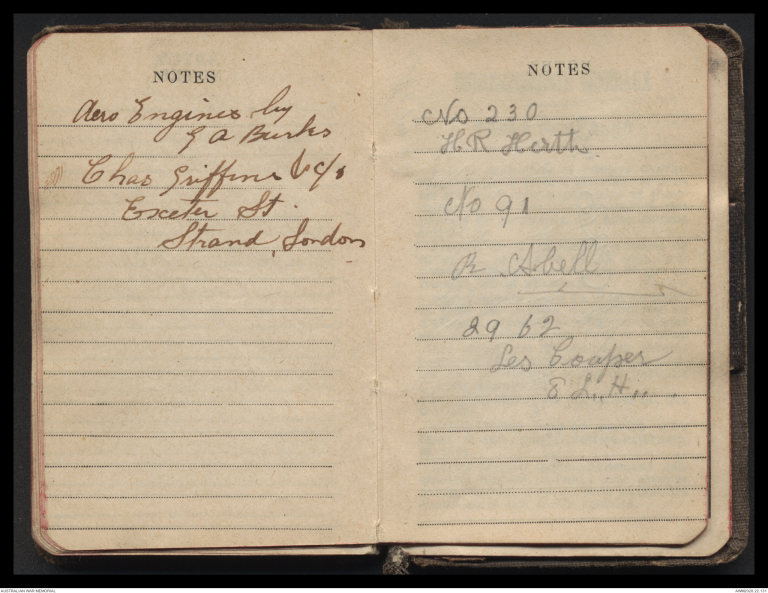 NOTES
Aero Engines by
G A Burls
Chas Griffin & Co
Exeter St.
Strand, London
NOTES
No 230
H R Hertt
No 91
R Abell
29 62
Les Couper
8 L.. H..
AUSTRALIAN WAR MEMORIAL